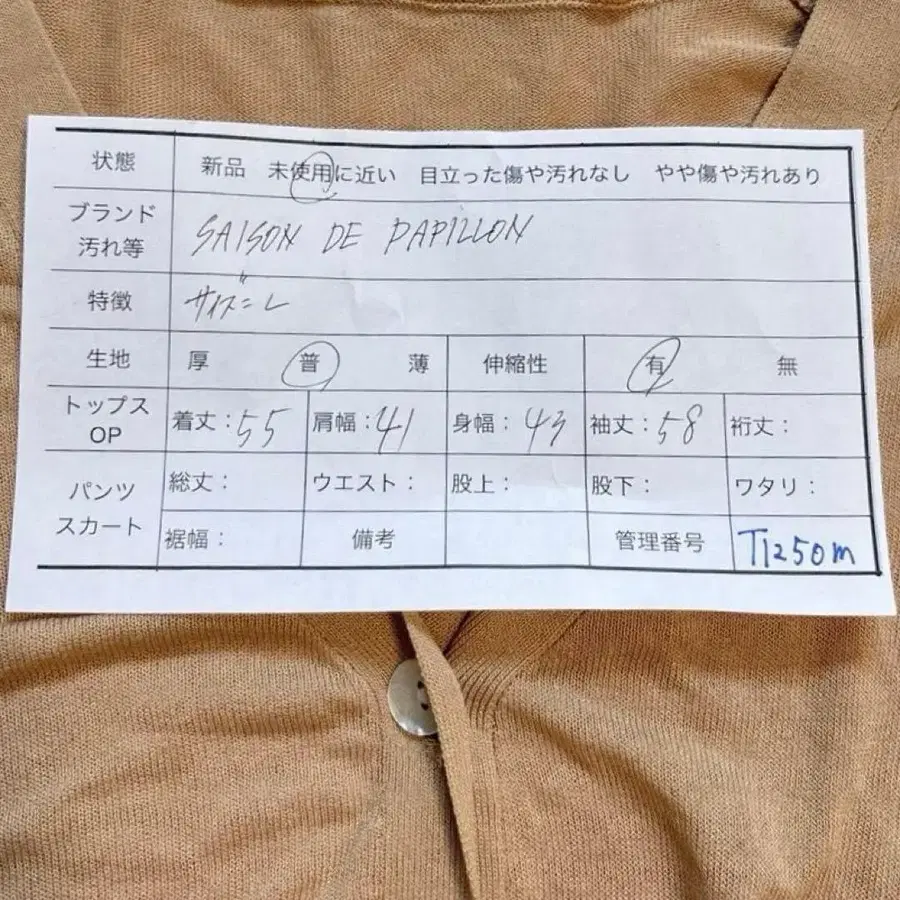 状態 新品 未使用に近い 目立った傷や汚れなし やや傷や汚れあり
ブランド
汚れ等 SAISON DE PAPILLON
特徴 サイズ=L
生地 厚 普 薄 伸縮性 有 無
トップス
OP 着丈:55 肩幅:41 身幅:43 袖丈:58 裄丈:
パンツ
スカート 総丈: ウエスト: 股上: 股下: ワタリ:
裾幅: 備考 管理番号 T1250m